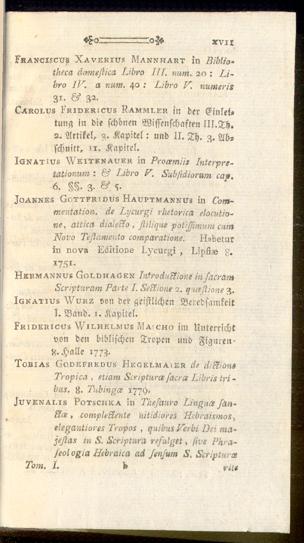 XVII
FRANCISCUS XAVERIUS MANNHART in Biblio-
theca domestica Libro III. num. 20: Li-
bro IV. a num. 40: Libro V. numeris
31. & 32.
CAROLUS FRIDERICUS RAMMLER in der Einlei-
tung in die schönen Wissenschaften III. Th.
2. Artikel, 3. Kapitel: und II. Th. 3. Ab-
schnitt, 11. Kapitel.
IGNATIUS WEITENAUER in Proœmiis Interpre-
tationum: & Libro V. Subsidiorum cap.
6. §§. 3. & 5.
JOANNES GOTTFRIDUS HAUPTMANNUS in Com-
mentation. de Lycurgi rhetorica elocutio-
ne, attica dialecto, stilique potissimum cum
Novo Testamento comparatione. Habetur
in nova Editione Lycurgi, Lipsiæ 8.
1751.
HERMANNUS GOLDHAGEN Introductione in sacram
Scripturam Parte I. Sectione 2. quæstione 3.
IGNATIUS WURZ von der geistlichen Beredsamkeit
I. Band. 1. Kapitel.
FRIDERICUS WILHELMUS MASCHO im Unterricht
von den biblischen Tropen und Figuren-
8. Halle 1773.
TOBIAS GODEFREDUS HEGELMAIER de dictione
Tropica, etiam Scripturæ sacræ Libris tri-
bus. 8. Tubingæ 1779.
JUVENALIS POTSCHKA in Thesauro Linguæ san-
ctæ, complectente nitidiores Hebraismos,
elegantiores Tropos, quibus Verbi Dei ma-
jestas in S. Scriptura refulget, sive Phra-
seologia Hebraica ad sensum S. Scripturæ
Tom. I. b rite